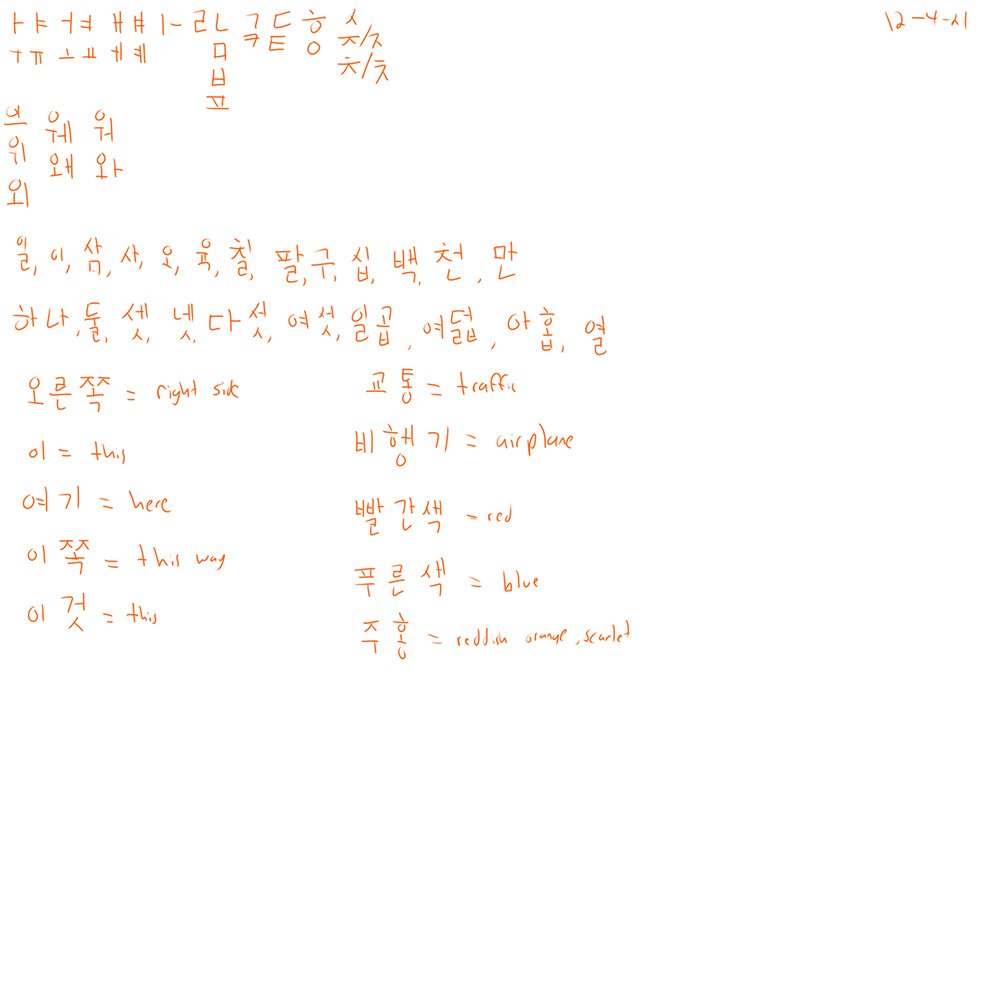 ㅏ ㅑ ㅓ ㅕ ㅐ ㅒ ㅣ ㅡ ㄹ ㄴ ㄱ ㄷ ㅎ ㅅ 12-4-21
ㅜ ㅠ ㅗ ㅛ ㅔ ㅖ ㅁ ㅋ ㅌ ㅇ ㅈ/ㅈ
ㅂ ㅊ/ㅊ
ㅍ
웨 워
위 왜 와
외
일, 이, 삼, 사, 오, 육, 칠, 팔, 구, 십, 백, 천, 만
하나, 둘, 셋, 넷, 다섯, 여섯, 일곱, 여덟, 아홉, 열
오른쪽 = right side
이 = this
여기 = here
이쪽 = this way
이것 = this
교통 = traffic
비행기 = airplane
빨간색 = red
푸른색 = blue
주홍 = reddish orange, scarlet